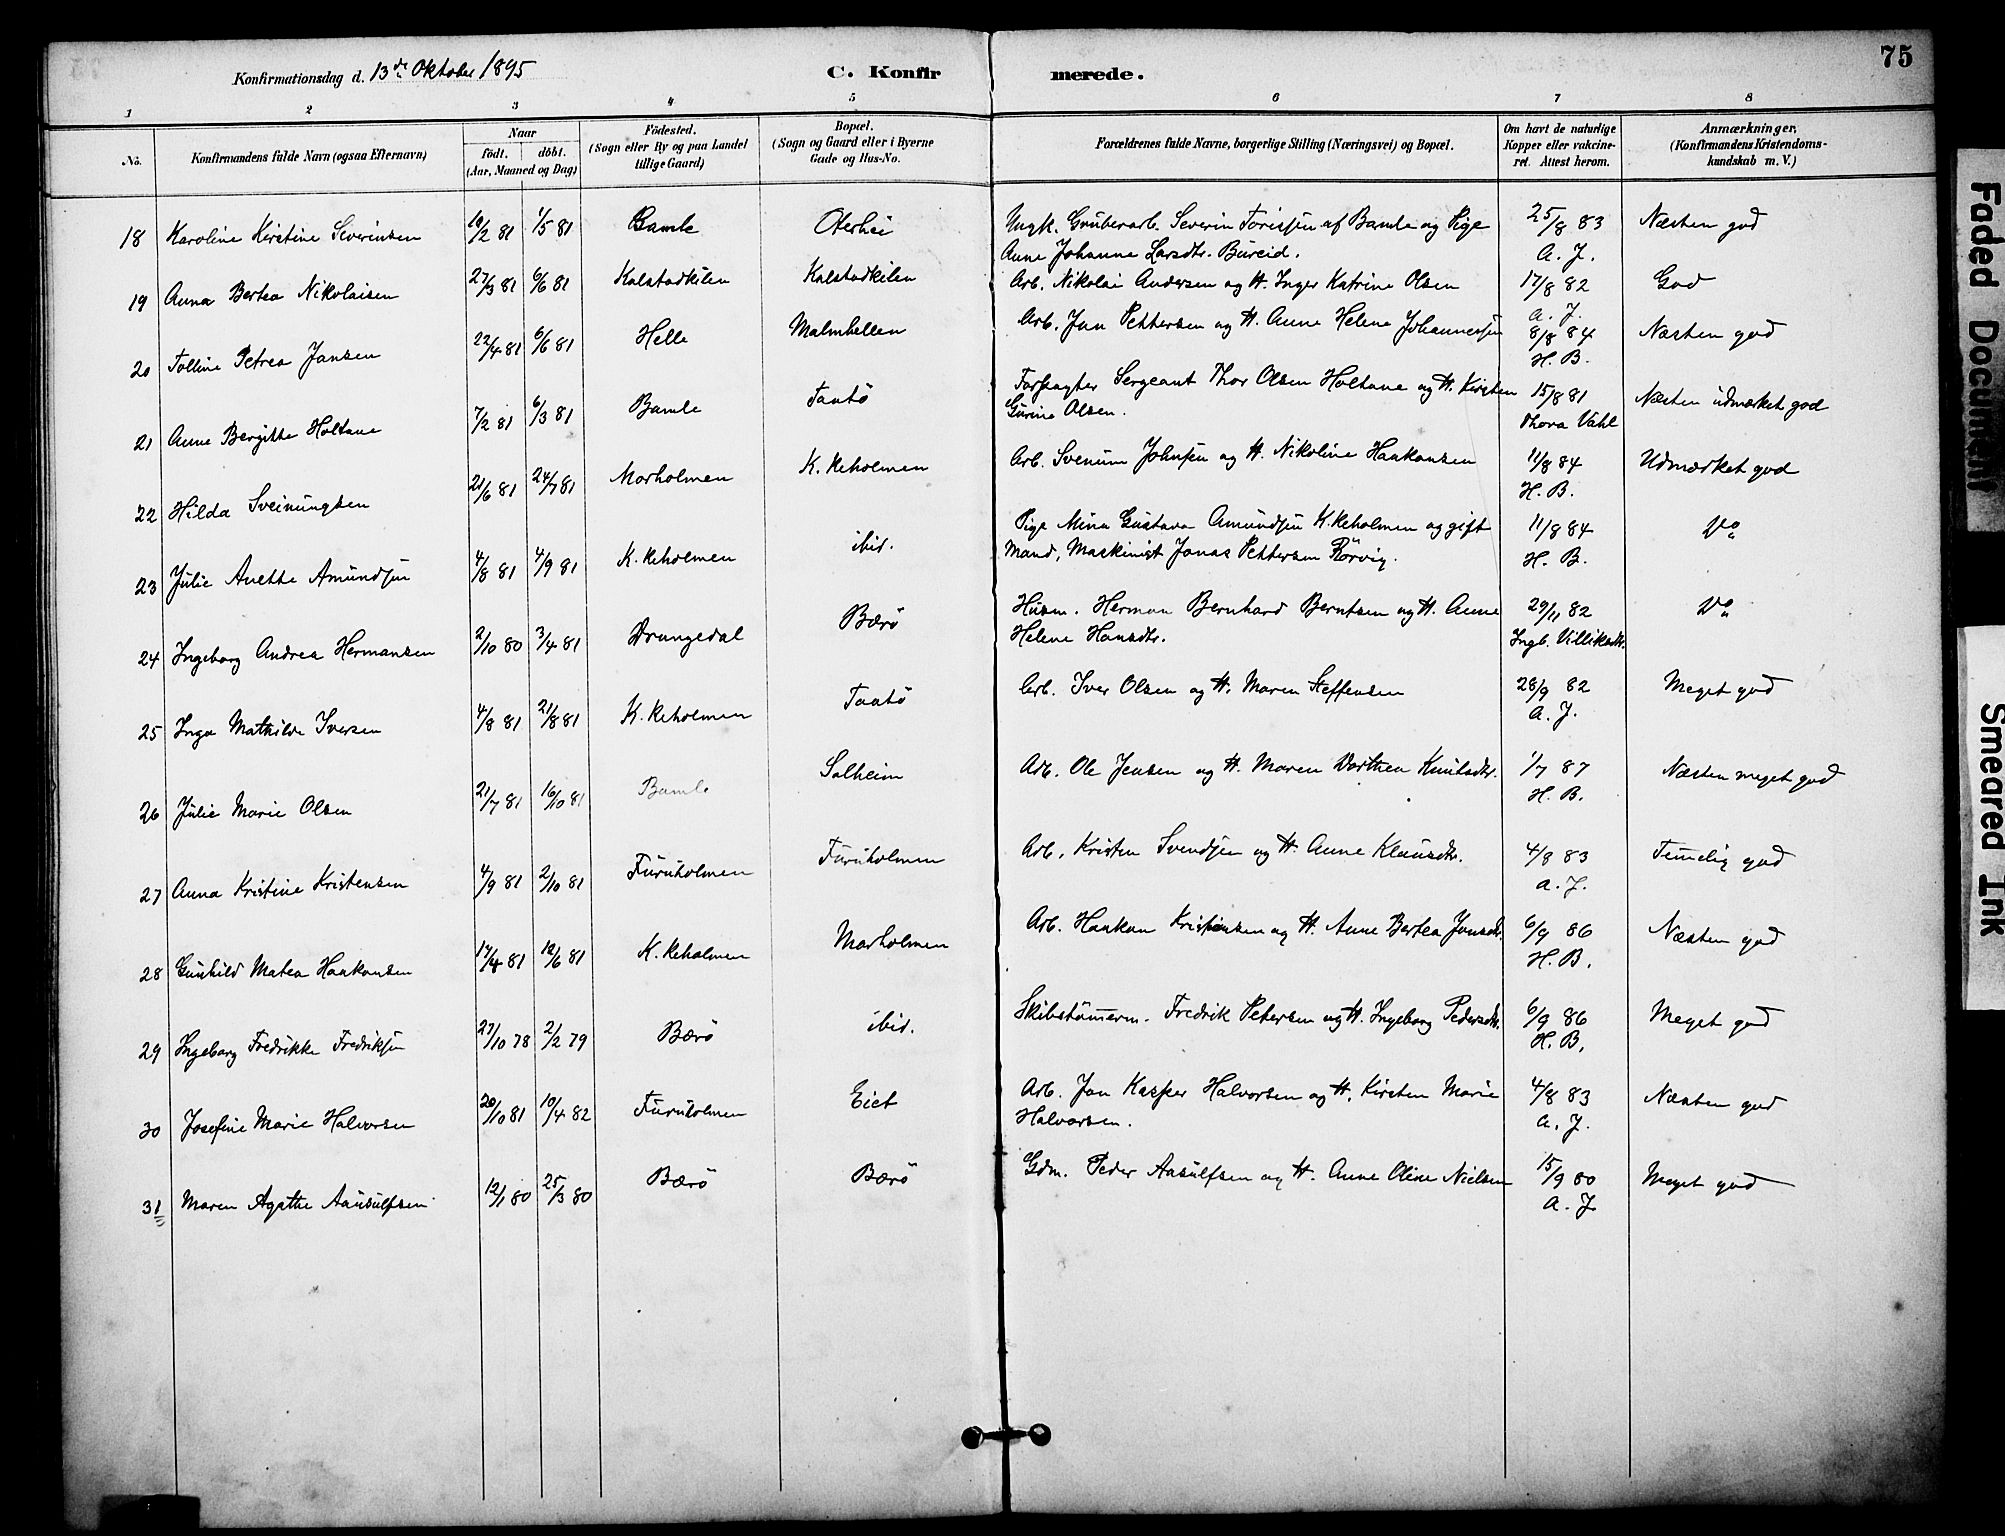 75
Konfirmationsdag d. 13de Oktober 1895
C. Konfirmerede.
1 2 3 4 5 6 7 8
No. Konfirmandens fulde Navn (ogsaa Efternavn) Naar født. døbt. (Aar, Maaned og Dag) Fødested. (Sogn eller By og paa Landet tillige Gaard) Bopæl. (Sogn og Gaard eller i Byerne Gade og Hus-No. Forældrenes fulde Navne, borgerlige Stilling (Næringsvei) og Bopæl. Om havt de naturlige Kopper eller vakcineret. Attest herom. Anmærkninger. (Konfirmandens Kristendomskundskab m. V.)
18 Karoline Kirstine Severinsen 10/2 81 1/5 81 Bamle Oterhei Ungk. Gruberarb. Severin Torisjen af Bamle og Pige 25/8 83 Næsten god
Anne Johanne Larsdtr. Bureid. A. J.
19 Anna Bertea Nikolaisen 27/3 81 6/6 81 Kalstadkilen Kalstadkilen Arb. Nikolai Andersen og H. Inger Katrine Olsen 17/8 82 God
A. J.
20 Tolline Petrea Jansen 22/4 81 6/6 81 Helle Malmhellen Arb. Jan Pettersen og H. Anne Helene Johannessen 8/8 84 Næsten god
H. B.
21 Anne Bergitte Holtane 7/2 81 6/3 81 Bamle Taatö Forpagter Sergeant Thor Olsen Holtane og H. Kirsten 15/8 81 Næsten udmærket god
Gurine Olsen. Thora Vahl
22 Hilda Sveinungsen 21/6 81 24/7 81 Morholmen K. Reholmen Arb. Svenum Johnsen og H. Nikoline Haakonsen 11/8 84 Udmærket god
H. B.
23 Julie Anette Amundsen 4/8 81 4/9 81 K. Reholmen ibid. Pige Mina Gustava Amundsen K. Reholmen og gift 11/8 84 Do
Mand, Maskinist Jonas Pettersen Rörvig. H. B.
24 Ingeborg Andrea Hermansen 2/10 80 3/4 81 Drangedal Bærö Husm. Herman Bernhard Berntsen og H. Anne 29/11 82 Do
Helene Hansdtr. Ingb. Villiksdtr.
25 Inga Mathilde Iversen 4/8 81 21/8 81 K. Reholmen Taatö Arb. Iver Olsen og H. Maren Steffensen 28/9 82 Meget god
A. J.
26 Julie Marie Olsen 21/7 81 16/10 81 Bamle Solheim Arb. Ole Jensen og H. Maren Dorthea Knutsdtr. 1/7 87 Næsten meget god
H. B.
27 Anna Kristine Kristensen 4/9 81 2/10 81 Furuholmen Furuholmen Arb. Kristen Svendsen og H. Anne Klausdtr. 4/8 83 Temmelig god
A. J.
28 Gunhild Matea Haakonsen 17/4 81 12/6 81 K. Reholmen Morholmen Arb. Haakon Kristensen og H. Anne Bertea Jonsdtr. 6/9 86 Næsten god
H. B.
29 Ingeborg Fredrikke Fredriksen 27/10 78 2/2 79 Bærö ibid. Skibstømerm. Fredrik Petersen og H. Ingeborg Pedersdtr. 6/9 86 Meget god
H. B.
30 Josefine Marie Halvorsen 20/10 81 10/4 82 Furuholmen Eiet Arb. Jan Kasper Halvorsen og H. Kirsten Marie 4/8 83 Næsten god
Halvorsen. A. J.
31 Maren Agathe Aansulfsen 12/1 80 25/3 80 Bærö Bærö Gdm. Peder Aasulfsen og H. Anne Oline Nielsen 15/9 80 Meget god
A. J
Faded Document
Smeared Ink